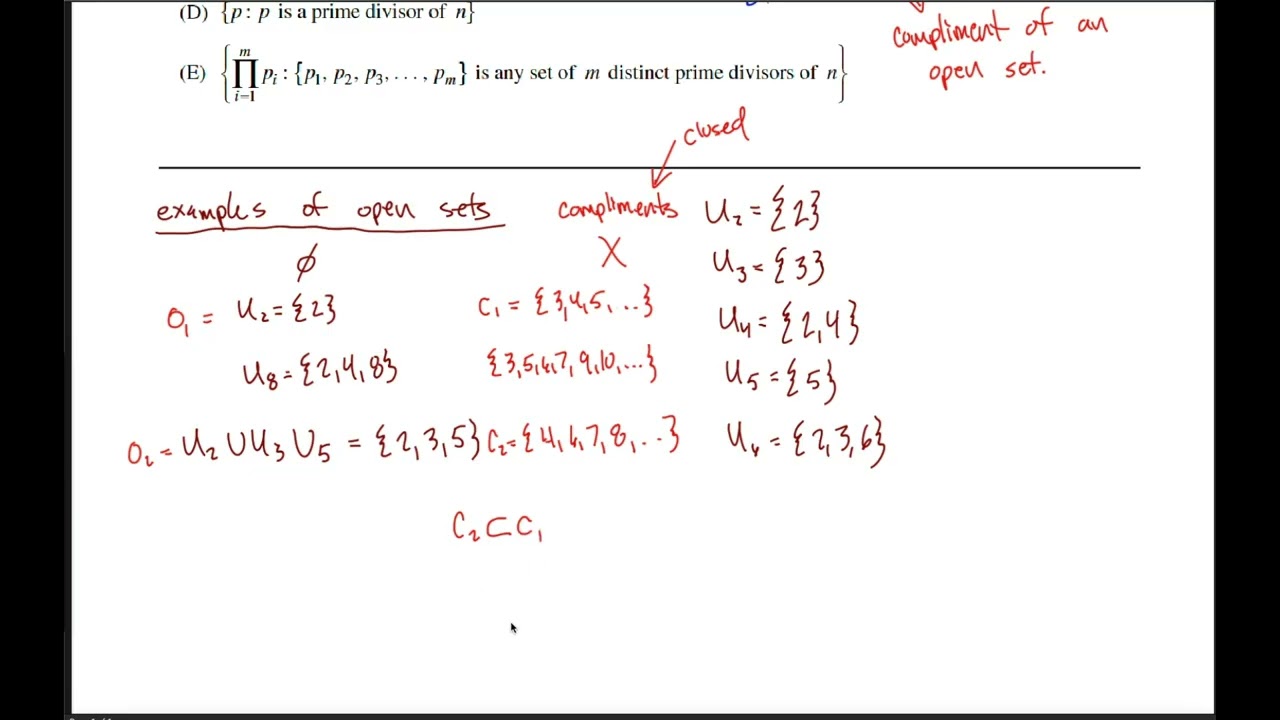 (D) {p : p is a prime divisor of n}
compliment of an
open set.
(E) {∏_{i=1}^{m} p_i : {p_1, p_2, p_3, . . . , p_m} is any set of m distinct prime divisors of n}
closed
examples of open sets
compliments
∅
X
O_1 = U_2 = {2}
C_1 = {3,4,5, ...}
U_8 = {2,4,8}
{3,5,6,7,9,10,...}
O_2 = U_2 ∪ U_3 ∪ U_5 = {2,3,5}
C_2 = {4,6,7,8,...}
U_2 = {2}
U_3 = {3}
U_4 = {2,4}
U_5 = {5}
U_6 = {2,3,6}
C_2 ⊂ C_1